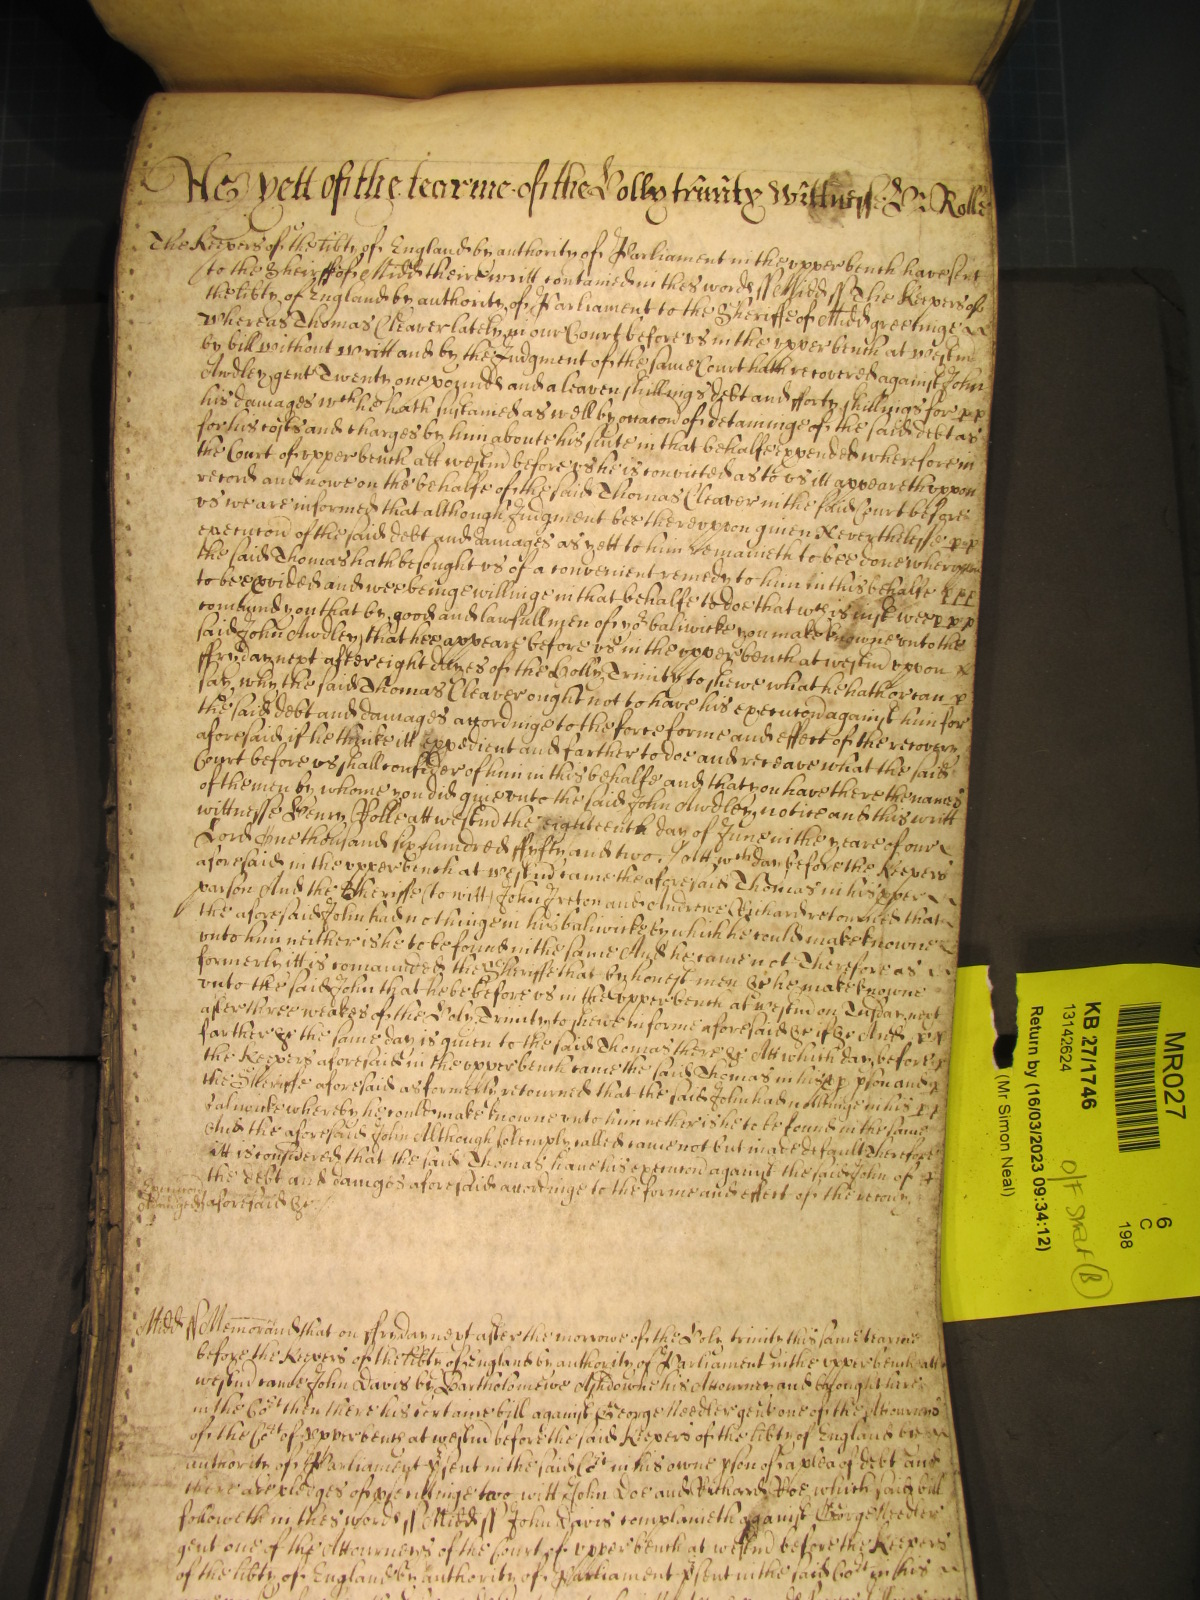 As yett of the tearme of the Holly trinity Wittnesse H: Rolle
The Keepers of the libty of England by authority of Parliament in the vpper bench have sent
to the Sheriffe of Midd theire writt contained in thes words ss Midd ss The Keepers of
the libty of England by authority of Parliament to the Sheriffe of Midd greetinge
Whereas Thomas Cleaver lately in our Court before vs in the vpper bench at westm
by bill without writt and by the Judgment of the same Court hath recovered against John
Awdley gent Twenty one pounds and a leaven shillings debt and fforty shillings for
his damages wch he hath sustained as well by occacon of detaininge of the said debt as
for his costs and charges by him aboute his suite in that behalfe expended wherefore in
the Court of vpper bench att westm before vs he is convicted as to vs itt appeareth vppon
record and nowe on the behalfe of the said Thomas Cleaver in the said Court before
vs we are informed that although Judgment bee therevppon given Neverthelesse
execucon of the said debt and damages as yett to him remaineth to bee done wherevppon
the said Thomas hath besought vs of a convenient remedy to him in this behalfe
to bee pvided and wee beinge willinge in that behalfe to doe that wch is iust wee
comaund you that by good and lawfull men of yor baliwicke you make knowne vnto the
said John Awdley that hee appeare before vs in the vpper bench at westm vppon
ffryday next after eight dayes of the Holly Trinity to shewe what he hath or can
say why the said Thomas Cleaver ought not to have his execucon against him for
the said debt and damages accordinge to the force forme and effect of the recovery
aforesaid if he thinke itt expedient and farther to doe and receave what the said
Court before vs shall consider of him in this behalfe and that you have there the names
of the men by whome you did give vnto the said John Awdley notice and this writt
wittnesse Henry Rolle att westm the eighteenth day of June in the yeare of our
Lord One thousand six hundred ffyfty and two. Att wch day before the Keepers
aforesaid in the vpper bench at westm came the aforesaid Thomas in his pper
parson And the Sheriffe (to witt) John Ireton and Andrewe Richard retourned that
the aforesaid John had nothinge in his baliwicke by which he could make knowne
vnto him neither is he to be found in the same And he came not Therefore as
formerly itt is comaunded the Sheriffe that by honest men &c he make knowne
vnto the said John that he be before vs in the vpper bench at westm on Tusday next
after three weekes of the Holy Trinity to shewe in forme aforesaid &c if &c And
farther &c the same day is given to the said Thomas there &c Att which day before
the Keepers aforesaid in the vpper bench came the said Thomas in his pp pson and
the Sheriffe aforesaid as formerly retourned that the said John had nothinge in his
baliwicke whereby he could make knowne vnto him nether is he to be found in the same
And the aforesaid John Although solemply called came not but made default Therefore
itt is considered that the said Thomas have his execucon against the said John of
the debt and damages aforesaid accordinge to the forme and effect of the recovy
aforesaid &c
Midd ss Memorand that on ffryday next after the morrowe of the Holy trinity this same tearme
before the Keepers of the libty of England by authority of Parliament in the vpper bench att
westm came John Davis by Bartholomewe Ashdowne his Attourney and brought here
in the Cort then there his certaine bill against George Needler gent one of the Attourneys
of the Cort of vpper bench at westm before the said Keepers of the libty of England by
authority of Parliament psent in the said Cort in his owne pson of a plea of debt and
there are pledges of psecutinge to witt John Doe and Richard Roe which said bill
followeth in thes words ss Midd ss John Davis complaineth against George Needler
gent one of the Attourneys of the Court of vpper bench at westm before the Keepers
of the libty of England by authority of Parliament psent in the said Cort in his
MR027
KB 27/1746
13142624
Return by (16/03/2023 09:34:12)
(Mr Simon Neal)
6
C
198
O/F
B